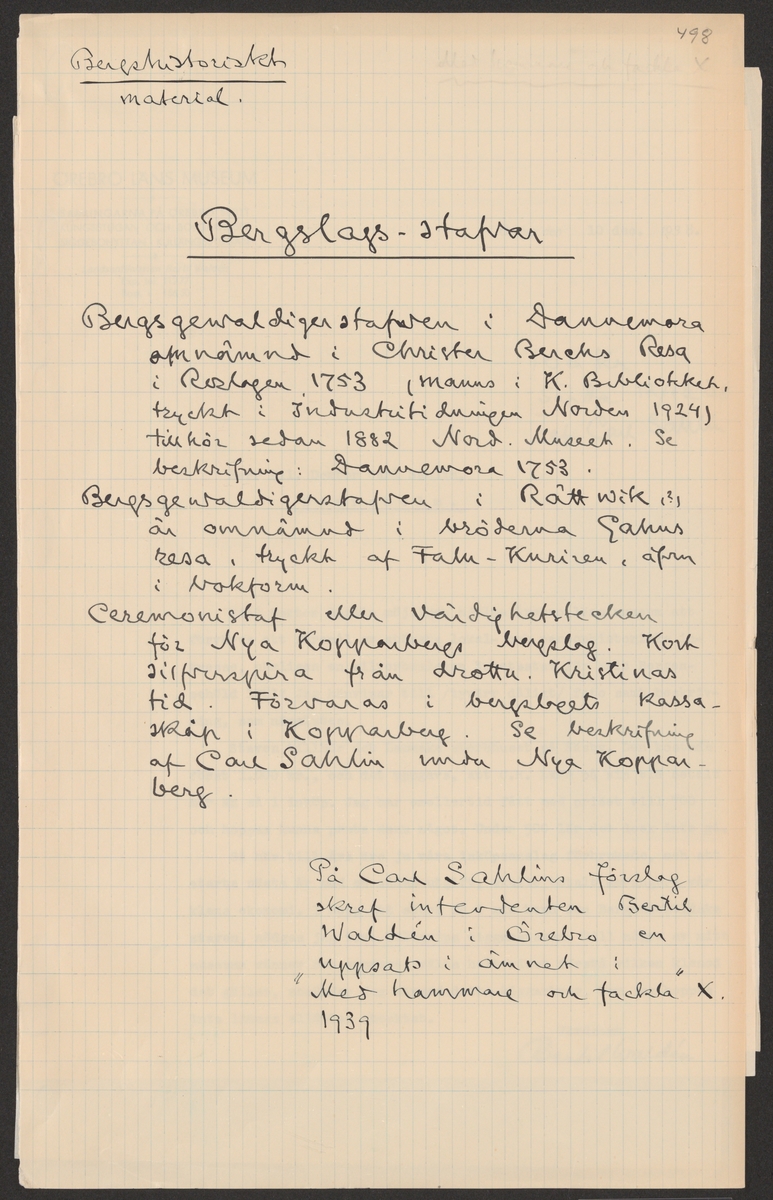 498
Bergshistoriskt
material.
Bergslags-stafvar
Bergsgewaldigerstafven i Dannemora
omnämnd i Christer Berchs Resa
i Roslagen 1753 (manus i K. Biblioteket,
tryckt i Industritidningen Norden 1924)
tillhör sedan 1882 Nord. Museet. Se
beskrifning: Dannemora 1753.
Bergsgewaldigerstafven i Rättwik (?)
är omnämnd i bröderna Gahns
resa, tryckt af Falu-Kuriren, äfven
i bokform.
Ceremonistaf eller värdighetstecken
för Nya Kopparbergs bergslag. Kort
silfverspira från drottn. Kristinas
tid. Förvaras i bergslagets kassa-
skåp i Kopparberg. Se beskrifning
af Carl Sahlin under Nya Koppar-
berg.
På Carl Sahlins förslag
skref intendenten Bertil
Waldén i Örebro en
uppsats i ämnet i
"Med hammare och fackla" X.
1939